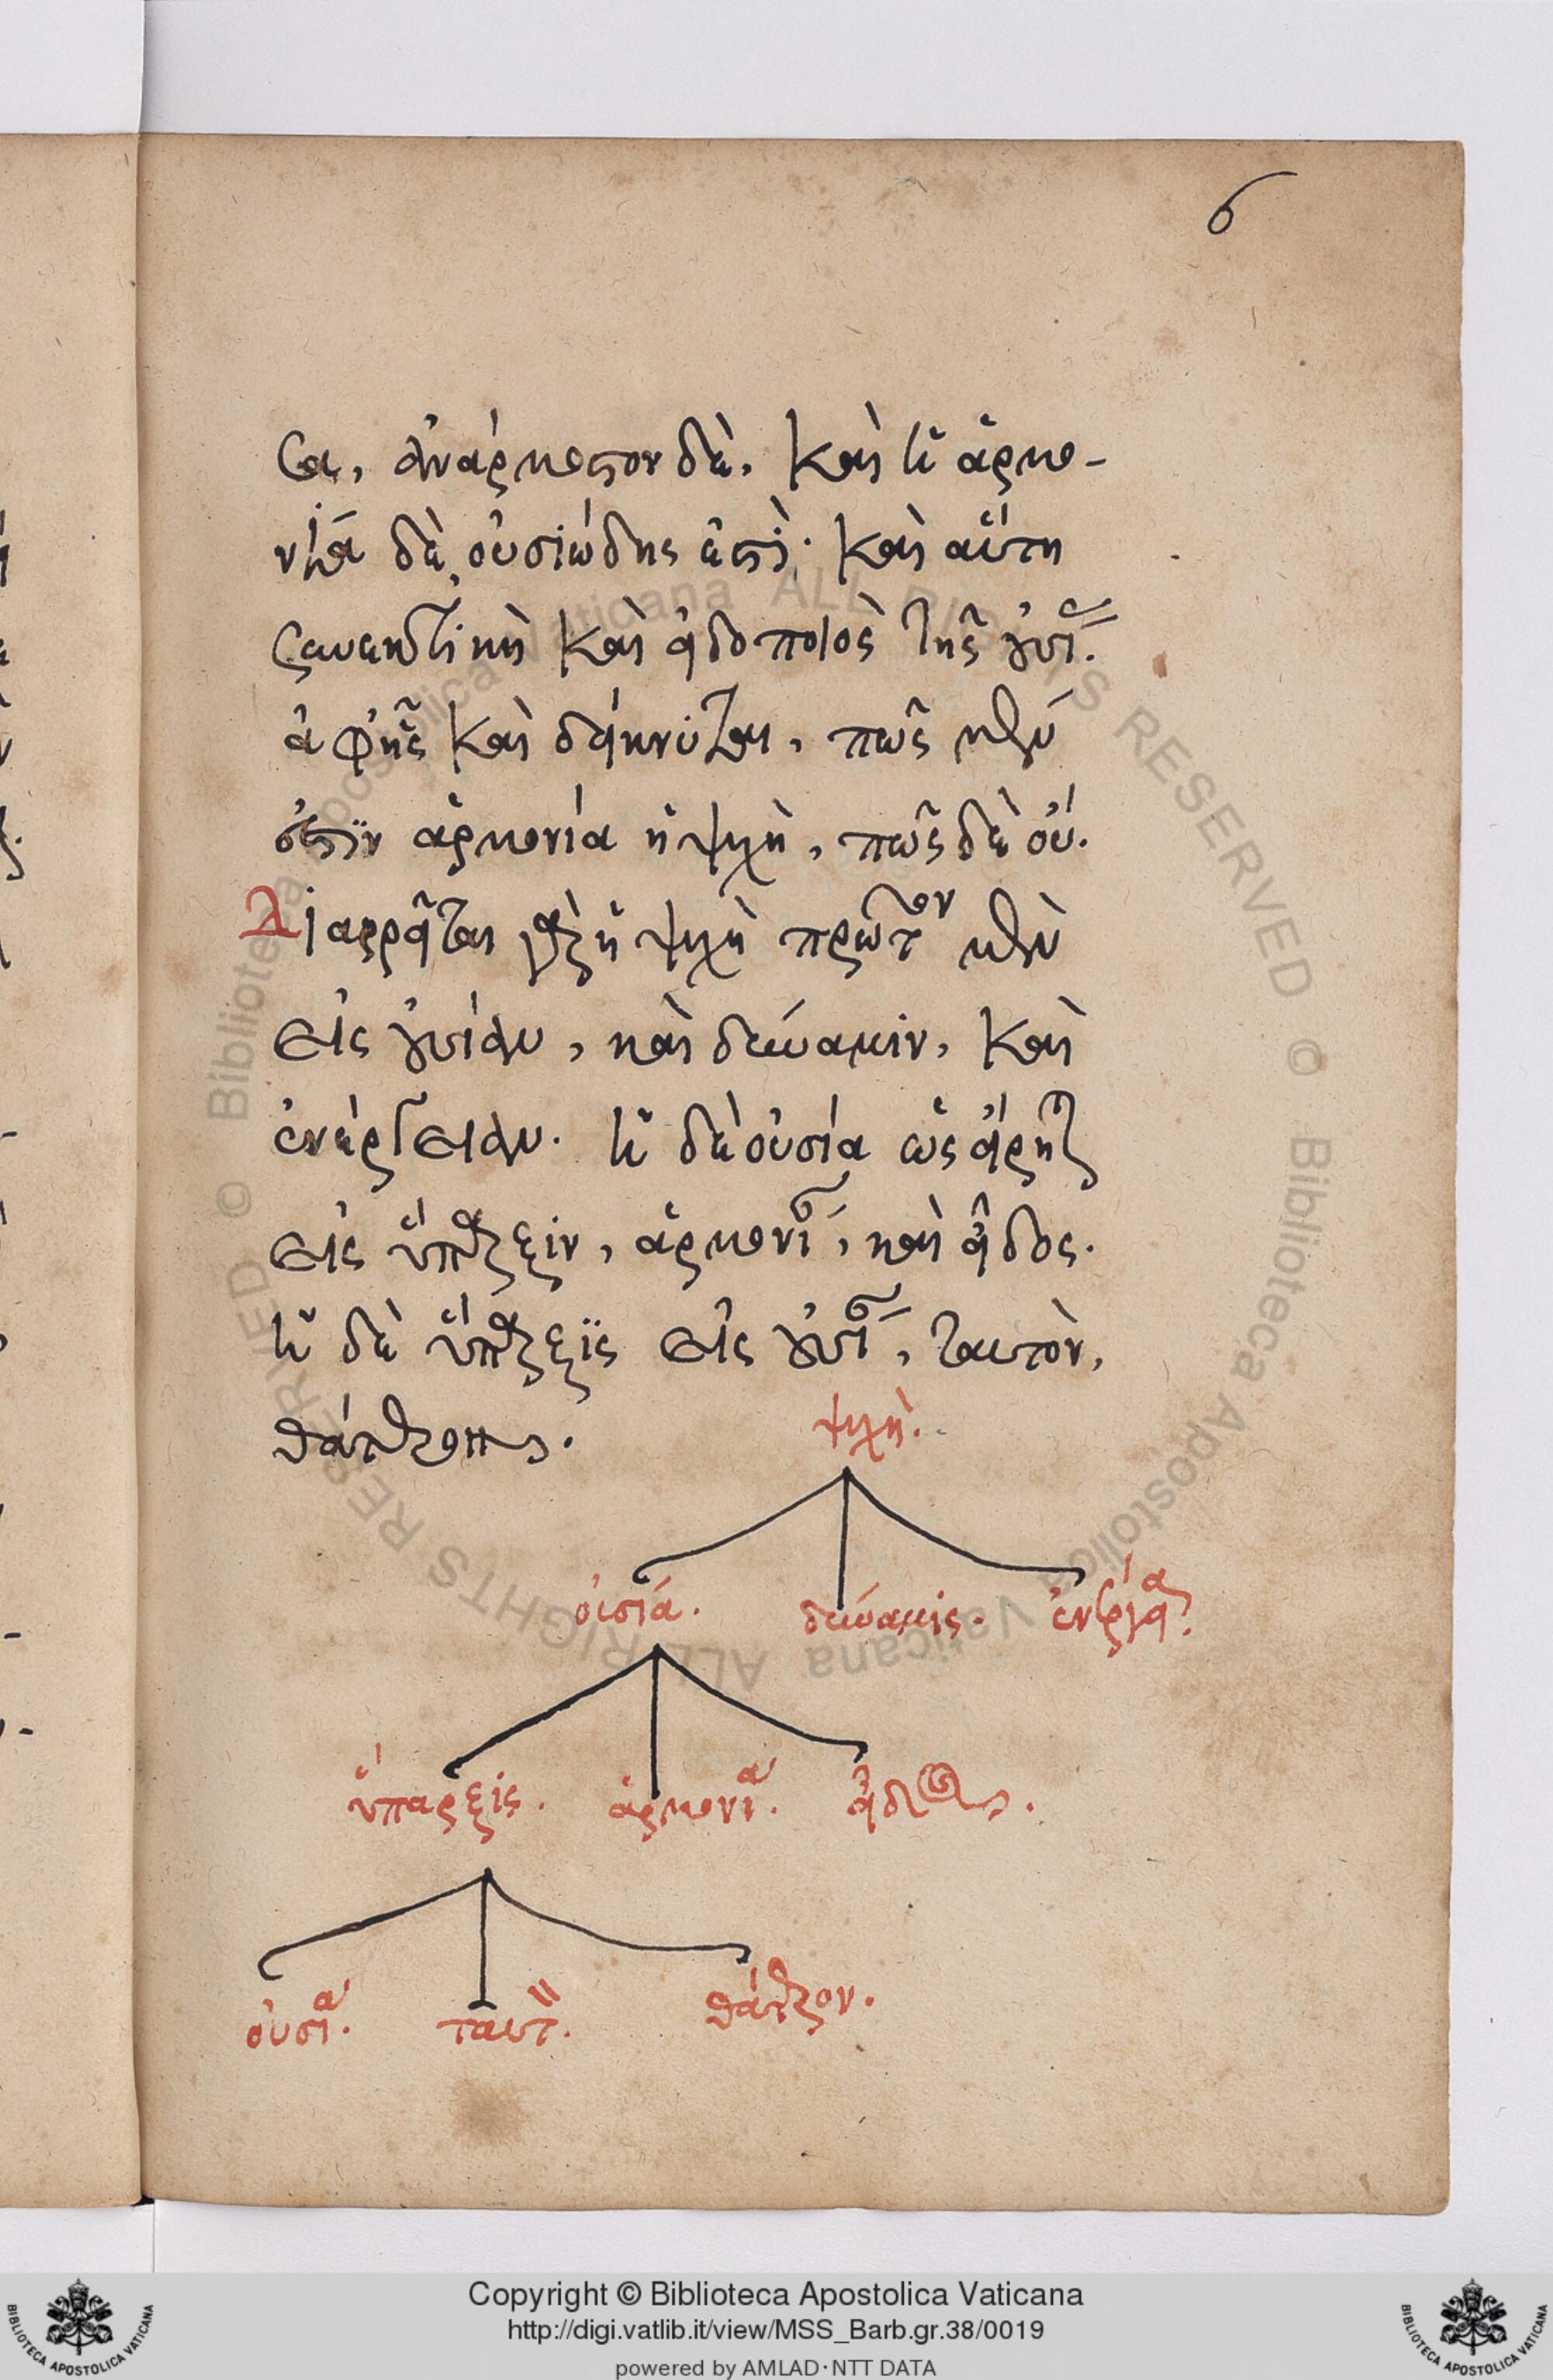 6
σα, ἀνάρμοστον δέ. καὶ ἡ ἁρμο-
νία δὲ οὐσιώδης ἐστί· καὶ αὕτη
συνεκτικὴ καὶ εἰδοποιὸς τῆς οὐσί
ἀφ' ἧς καὶ δείκνυται, πῶς μὲν
ἐστὶν ἁρμονία ἡ ψυχὴ, πῶς δὲ οὔ.
Διαιρεῖται γὰρ ἡ ψυχὴ πρῶτον μὲν
εἰς οὐσίαν, καὶ δύναμιν, καὶ
ἐνέργειαν. ἡ δὲ οὐσία ὡς εἴρηται
εἰς ὕπαρξιν, ἁρμονί, καὶ εἶδος.
ἡ δὲ ὕπαρξις εἰς οὐσί, ταυτὸν,
θάτερον.
ψυχὴ.
οὐσία. δύναμις. ἐνέργεια.
ὕπαρξις. ἁρμονία. εἶδος.
οὐσία. ταυτ. θάτερον.
Copyright © Biblioteca Apostolica Vaticana
http://digi.vatlib.it/view/MSS_Barb.gr.38/0019
powered by AMLAD·NTT DATA
BIBLIOTECA APOSTOLICA VATICANA
BIBLIOTECA APOSTOLICA VATICANA
© Biblioteca Apostolica Vaticana ALL RIGHTS RESERVED © Biblioteca Apostolica Vaticana ALL RIGHTS RESERVED